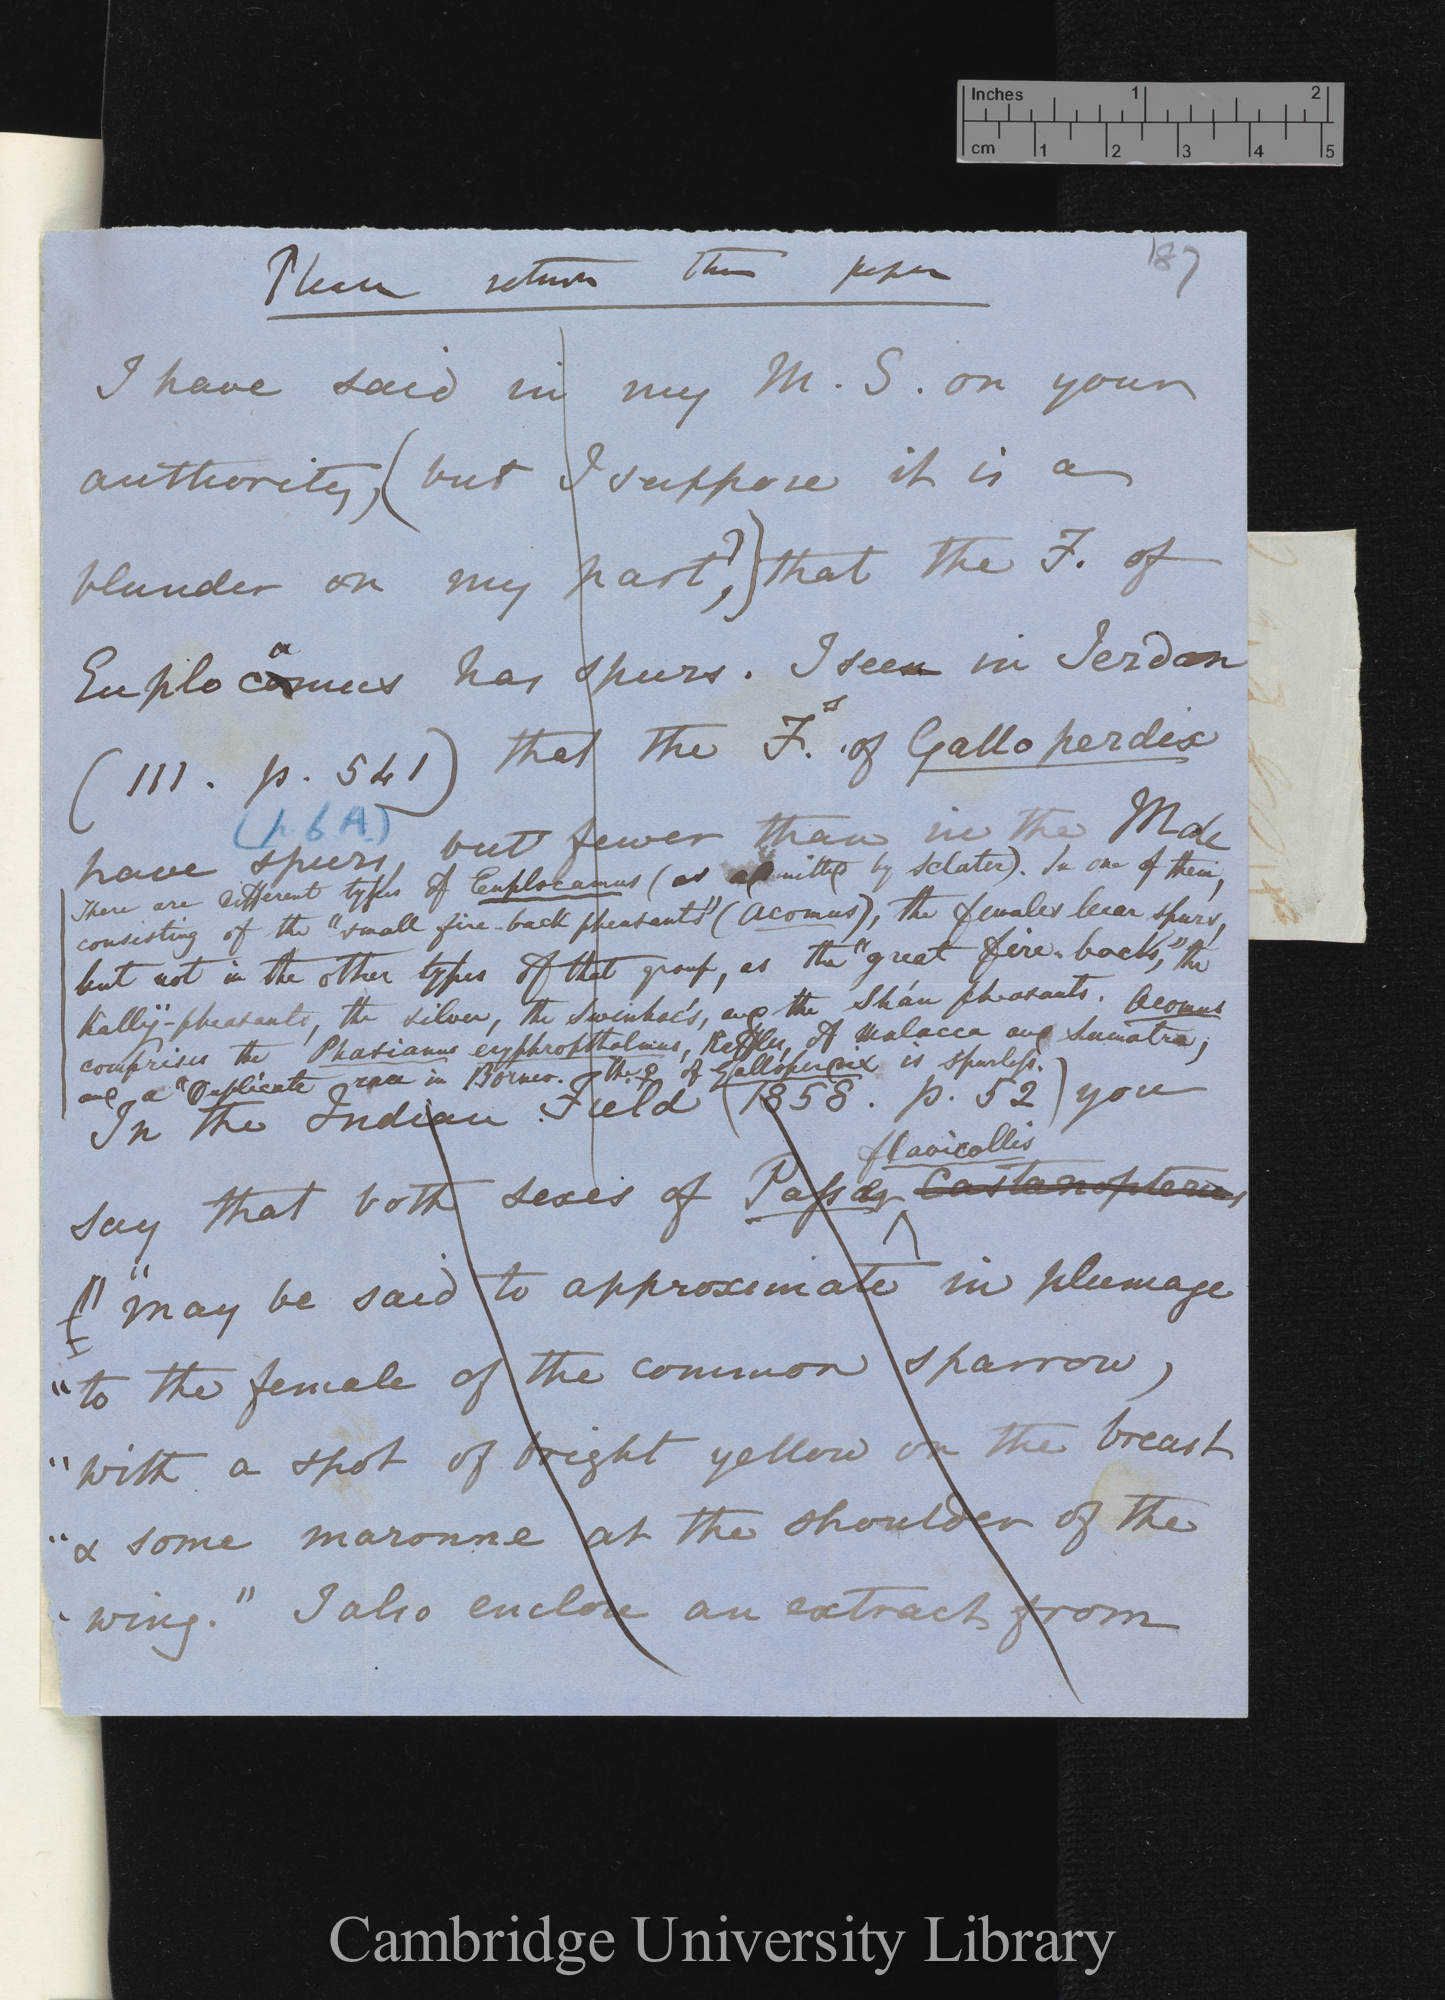 Inches 1 2
cm 1 2 3 4 5
187
Please return this paper
I have said in my M. S. on your
authority, (but I suppose it is a
blunder on my part?,) that the F. of
Euplocamus has spurs. I see in Jerdon
(III. p. 541) that the F.s of Galloperdix
(p. 6 A.)
have spurs, but fewer than in the Male
There are different types of Euplocamus (as admitted by Sclater). In one of them,
consisting of the "small fire-back pheasants" (Acomus), the females bear spurs,
but not in the other types of that group, as the "great fire-backs," the
Kallij-pheasants, the silver, the Swinhoe's, and the Shán pheasants. Acomus
comprises the Phasianus eryphrophthalmus, Raffles, of Malacca and Sumatra;
and a "Duplicate race in Borneo. The ♀ of Galloperdix is spurless.
In the Indian Field (1858. p. 52) you
flavicollis
say that both sexes of Passer Castanopterus
"may be said to approximate in plumage
"to the female of the common sparrow,
"with a spot of bright yellow on the breast
"& some maronne at the shoulder of the
wing." I also enclose an extract from
Cambridge University Library